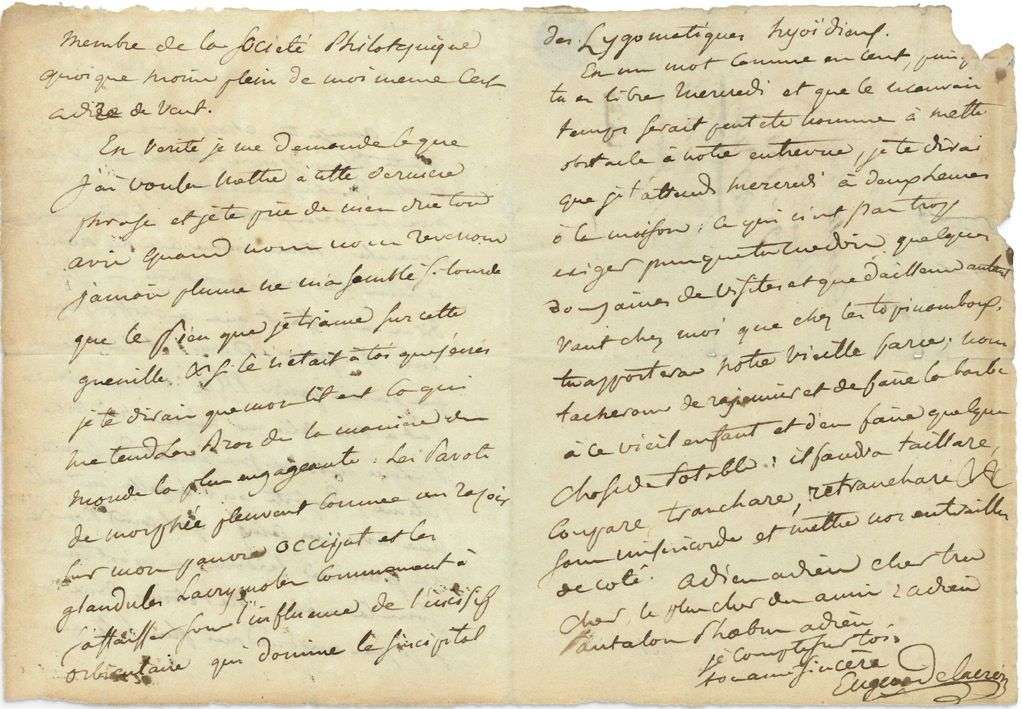 membre de la Société Philotechnique
quoique moins plein de moi meme C'est
adire de vent.
En verité je me demande ce que
j'ai voulu mettre à cette derniere
phrase et je te prie de m'en dire ton
avis quand nous nous reverrons
jamais plume ne m'a semblé si lourde
que le que je traine sur cette
guenille. & Si ce n'était à toi que j'écris
je te dirais que mon lit est là qui
me tend les Bras de la maniere du
monde la plus engageante. Les Pavots
de morphée pleuvent comme
sur mon pauvre occiput et les
glandules Lacrymales commencent à
s'affaisser sous l'influence de l'incisif
orbiculaire qui domine le sincipital
des Zygomatiques hyoïdiens.
En un mot comme en cent, puisque
tu es libre Mercredi et que le mauvais
temps serait peut etre homme à mettre
obstacle à notre entrevue, je te dirai
que je t'attends mercredi à deux heures
à la maison : ce qui n'est pas trop
exiger puisque tu me dois quelques
douzaines de visites et que d'ailleurs autant
vaut chez moi que chez les topinamboux.
tu apporteras notre vieille farce : nous
tacherons de rajeunir et de faire la barbe
à ce vieil enfant et d'en faire quelque
chose de potable : il faudra taillare,
coupare, tranchare, retranchare &
sans misericorde et mettre nos entrailles
de coté. adieu adieu cher
cher, le plus cher des amis adieu
Pantalon Phœbus adieu
je compte sur toi.
ton ami sincère
Eugene Delacroix